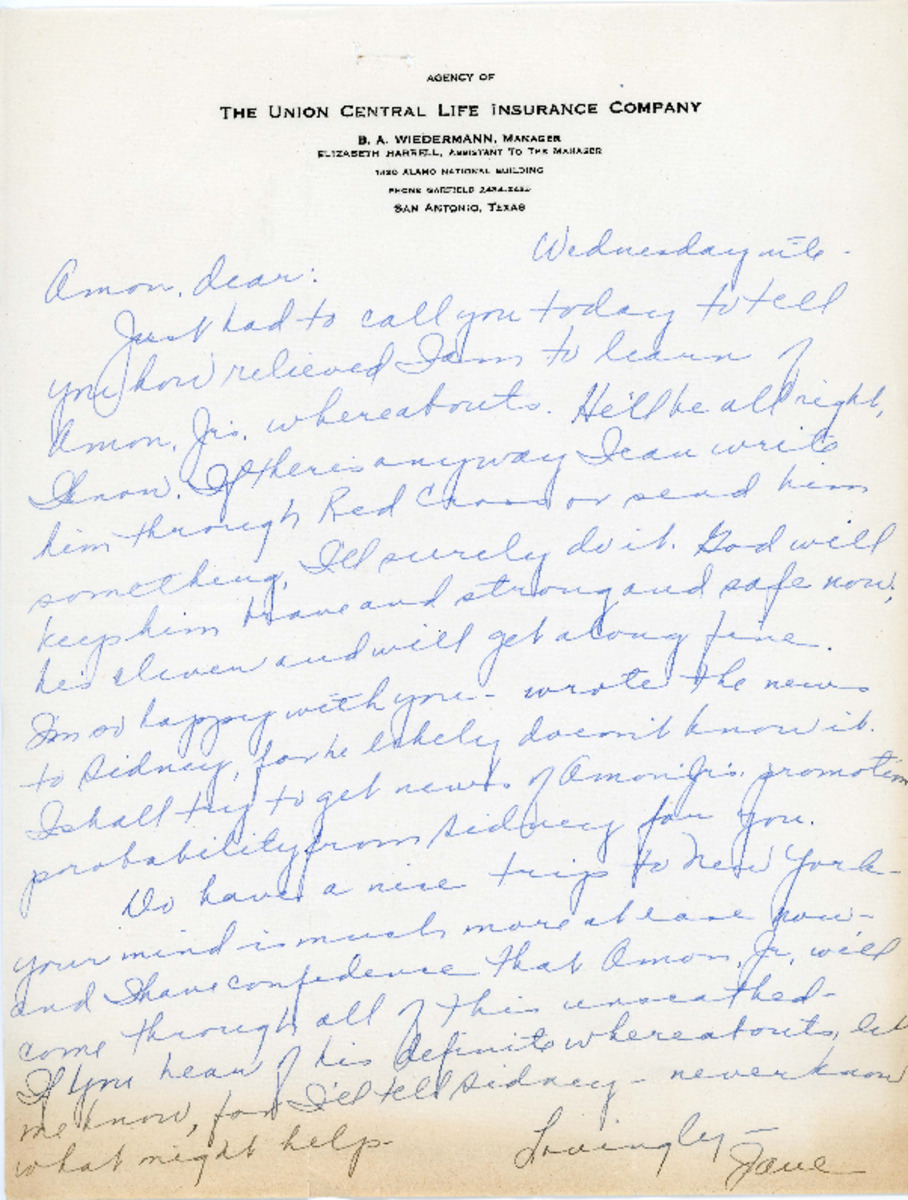 AGENCY OF
THE UNION CENTRAL LIFE INSURANCE COMPANY
B. A. WIEDERMANN, MANAGER
ELIZABETH HARRELL, ASSISTANT TO THE MANAGER
1420 ALAMO NATIONAL BUILDING
PHONE GARFIELD
SAN ANTONIO, TEXAS
Wednesday nite -
Amon, dear:
Just had to call you today to tell
you how relieved I am to learn of
Amon, Jr's. whereabouts. He'll be all right,
I know. If there is anyway I can write
him through Red Cross or send him
something, I'll surely do it. God will
keep him brave and strong and safe now,
he's clever and will get along fine.
I'm so happy with you - wrote the news
to Sidney, for he likely doesn't know it.
I shall try to get news of Amon Jr's. promotion
probability from Sidney for you.
Do have a nice trip to New York -
your mind is much more at ease now -
and I have confidence that Amon, Jr. will
come through all of this unscathed -
If you hear of his definite whereabouts, let
me know, for I'll tell Sidney - never know
what might help -
Lovingly -
Jane